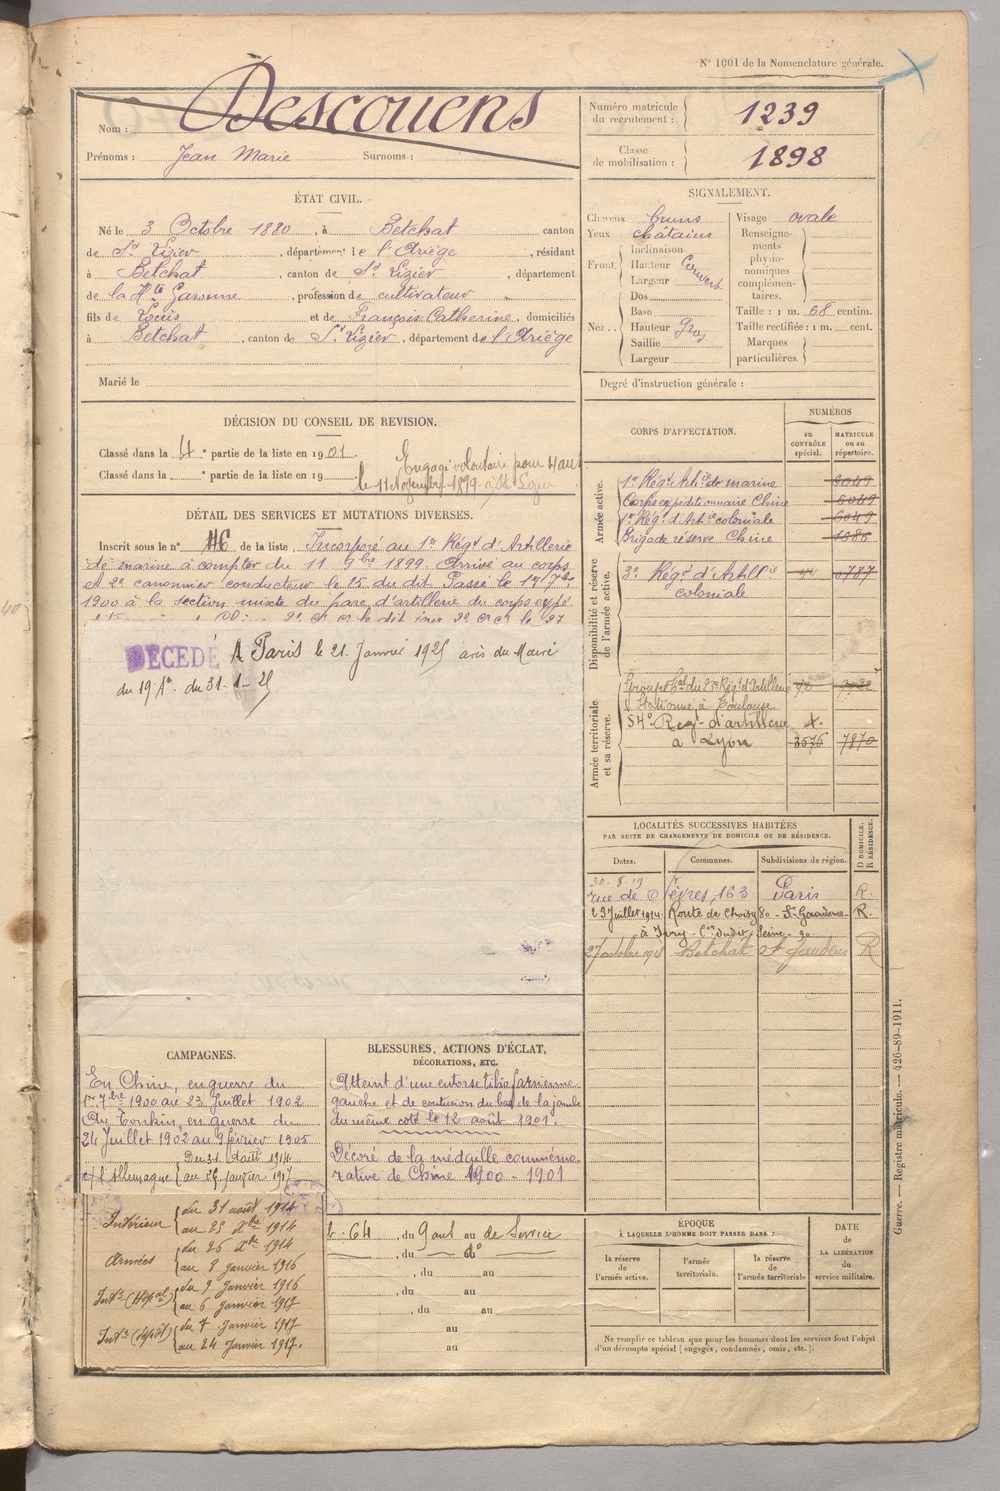 N° 1001 de la Nomenclature générale.
Nom : Descouens
Prénoms : Jean Marie Surnoms :
Numéro matricule du recrutement : 1239
Classe de mobilisation : 1898
ÉTAT CIVIL.
Né le 3 Octobre 1880, à Betchat canton
de St Lizier, département de l'Ariège, résidant
à Betchat, canton de St Lizier, département
de la Hte Garonne, profession de cultivateur
fils de Louis et de François Catherine, domiciliés
à Betchat, canton de St Lizier, département de l'Ariège
Marié le
SIGNALEMENT.
Cheveux bruns
Yeux châtains
Front Inclinaison
Hauteur Couvert
Largeur
Nez Dos
Base
Hauteur Gros
Saillie
Largeur
Visage ovale
Renseignements physionomiques complémentaires.
Taille : 1 m. 68 centim.
Taille rectifiée : 1 m. cent.
Marques particulières.
Degré d'instruction générale :
DÉCISION DU CONSEIL DE REVISION.
Classé dans la 4e partie de la liste en 1901.
Classé dans la e partie de la liste en 19
Engagé volontaire pour 4 ans
le 11 Novembre 1899 à
DÉTAIL DES SERVICES ET MUTATIONS DIVERSES.
Inscrit sous le n° 46 de la liste, Incorporé au 1er Régt d'Artillerie
de marine à compter du 11 9bre 1899. Arrivé au corps
et 2e canonnier conducteur le 15 du dit. Passé le 1er 7bre
1900 à la section mixte du parc d'artillerie du corps expé
DÉCÉDÉ A Paris le 21 Janvier 1925 avis du Maire
du 19e At. du 31-1-25
CORPS D'AFFECTATION.
NUMÉROS
au CONTRÔLE spécial.
MATRICULE ou au répertoire.
Armée active.
1er Régt Artie de marine 6049
Corps expéditionnaire Chine 6049
1er Régt d'Artie coloniale 6049
Brigade réserve Chine 1086
Disponibilité et réserve de l'armée active.
3e Régt d'Artillie coloniale 0787
Armée territoriale et sa réserve.
Groupe tal du 23e Régt d'Artillerie
Stationné à Toulouse
54e Regt d'artillerie
à Lyon 3576 7870
LOCALITÉS SUCCESSIVES HABITÉES
PAR SUITE DE CHANGEMENTS DE DOMICILE OU DE RÉSIDENCE.
Dates. Communes. Subdivisions de région. D DOMICILE. R RÉSIDENCE.
30-8-19
rue de Sèvres, 163 Paris R.
23 Juillet 1914 Route de Choisy 80 - St Gaudens - R.
à Ivry - Con dudit - Seine - 20
27 octobre 1918 Betchat St Gaudens R
CAMPAGNES.
En Chine, en guerre du
1er 7bre 1900 au 23 Juillet 1902
Au Tonkin, en guerre du
24 Juillet 1902 au 9 février 1905
c/ l'Allemagne Du 31 Août 1914
au 25 janvier 1917
Intérieur du 31 août 1914
au 25 Xbre 1914
Armées du 26 Xbre 1914
au 8 Janvier 1916
Intr (Hôpal) du 9 Janvier 1916
au 6 Janvier 1917
Intr (dépôt) du 7 Janvier 1917
au 24 Janvier 1917.
BLESSURES, ACTIONS D'ÉCLAT,
DÉCORATIONS, ETC.
Atteint d'une entorse tibio tarsienne
gauche et de contusion du bas de la jambe
du même coté le 12 août 1901.
Décoré de la médaille commémo-
rative de Chine 1900 - 1901
L. 64, du 9 aout au de Service
, du d°
, du au
, du au
, du au
au
au
ÉPOQUE
À LAQUELLE L'HOMME DOIT PASSER DANS :
la réserve de l'armée active.
l'armée territoriale.
la réserve de l'armée territoriale
DATE
DE LA LIBÉRATION
du
service militaire.
Ne remplir ce tableau que pour les hommes dont les services font l'objet
d'un décompte spécial (engagés, condamnés, omis, etc.).
Guerre. — Registre matricule. — 426-89-1911.